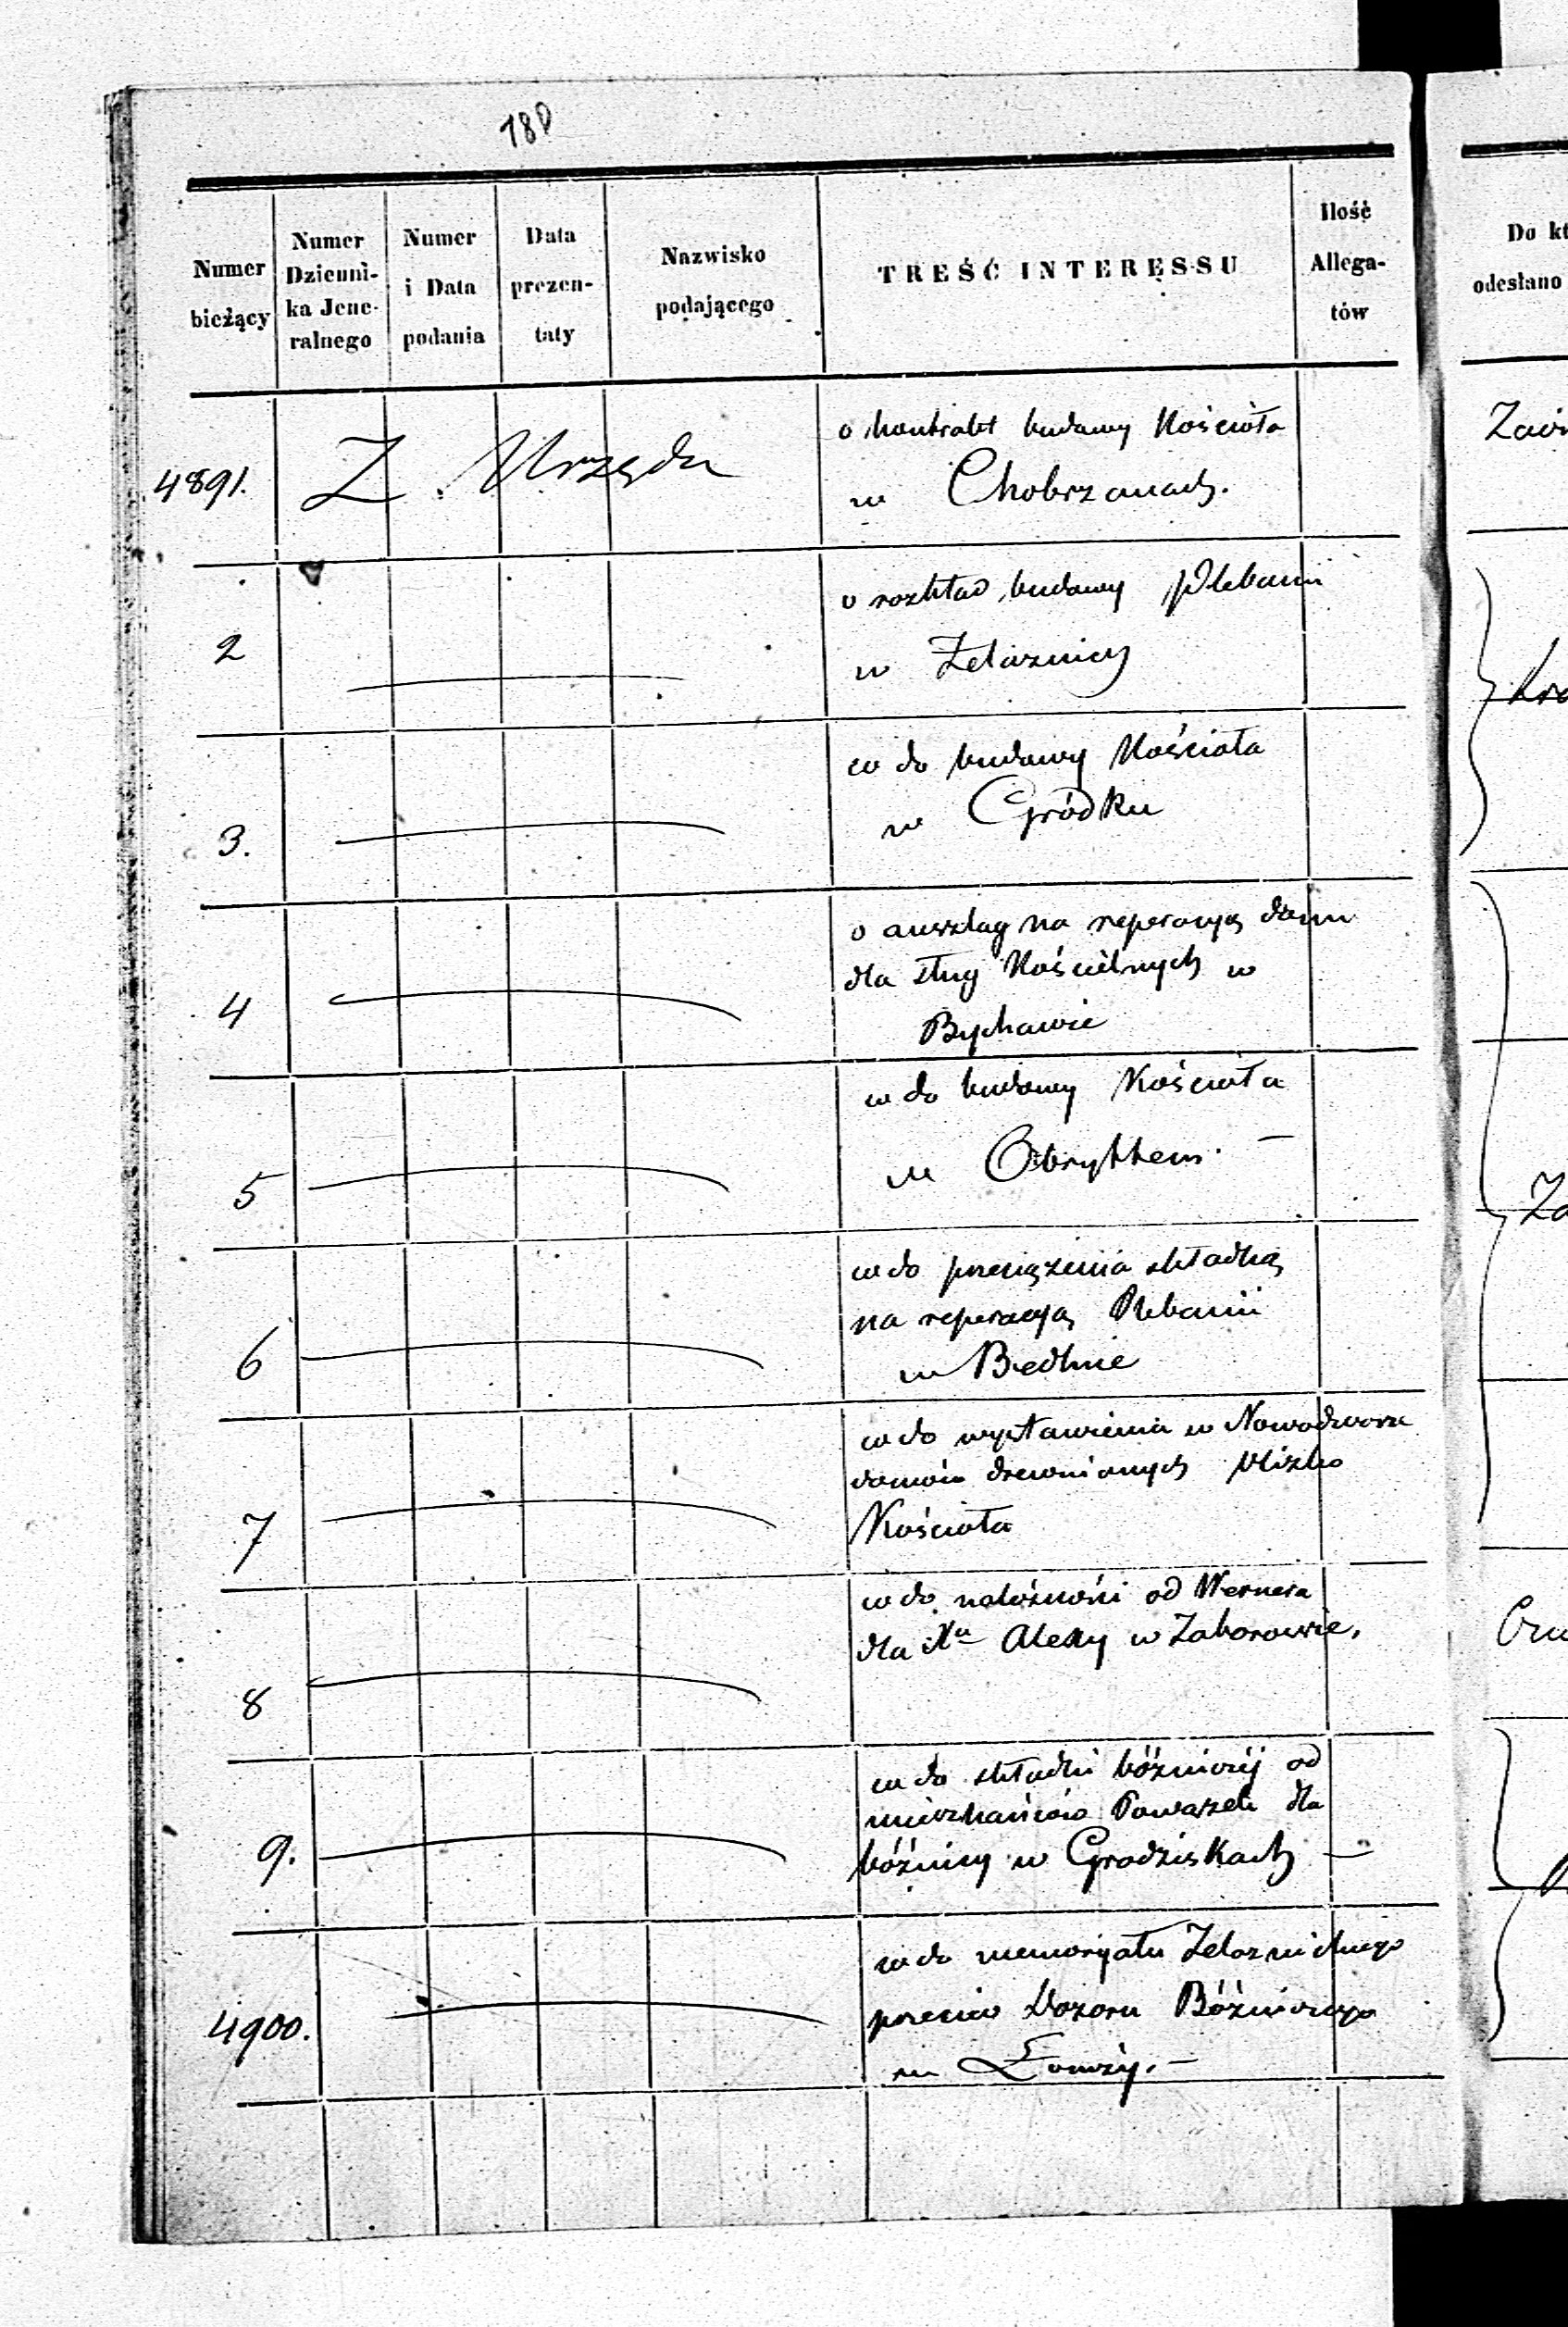 180
Numer bieżący
Numer Dzienni-ka Jene-ralnego
Numer i Data podania
Data prezen-taty
Nazwisko podającego
TREŚĆ INTERESSU
Ilość Allega-tów
Do kt
odesłano
4891. Z Urzędu
o kontrakt budowy Kościoła
w Chobrzanach.
Zawi
2
o rozkład budowy Plebanii
w Żelaznicy
3.
co do budowy Kościoła
w Gródku
4
o anszlag na reperacyą domu
dla sług Kościelnych w
Bychawie
5
co do budowy Kościoła
w Obryttem. —
Za
6
co do przeciążenia składką
na reperacyą Plebanii
w Bedlnie
7
co do wystawienia w Nowodworze
domów drewnianych blizko
Kościoła
8
co do należności od Wernera
dla Xa Alexy w Zaborowie,
9.
co do składki bóżniczéj od
mieszkańców Powązek dla
bóżnicy w Grodziskach —
4900.
co do memoryału Żelaznickiego
przeciw Dozoru Bóżniczego
w Łomży. —